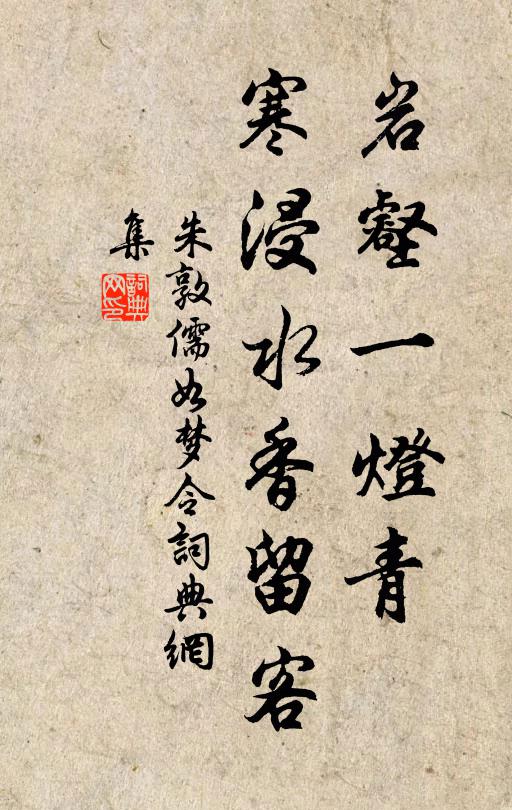 岩壑一燈青
寒浸水香留客
朱敦儒如梦令詞典網
集
詞典
网印